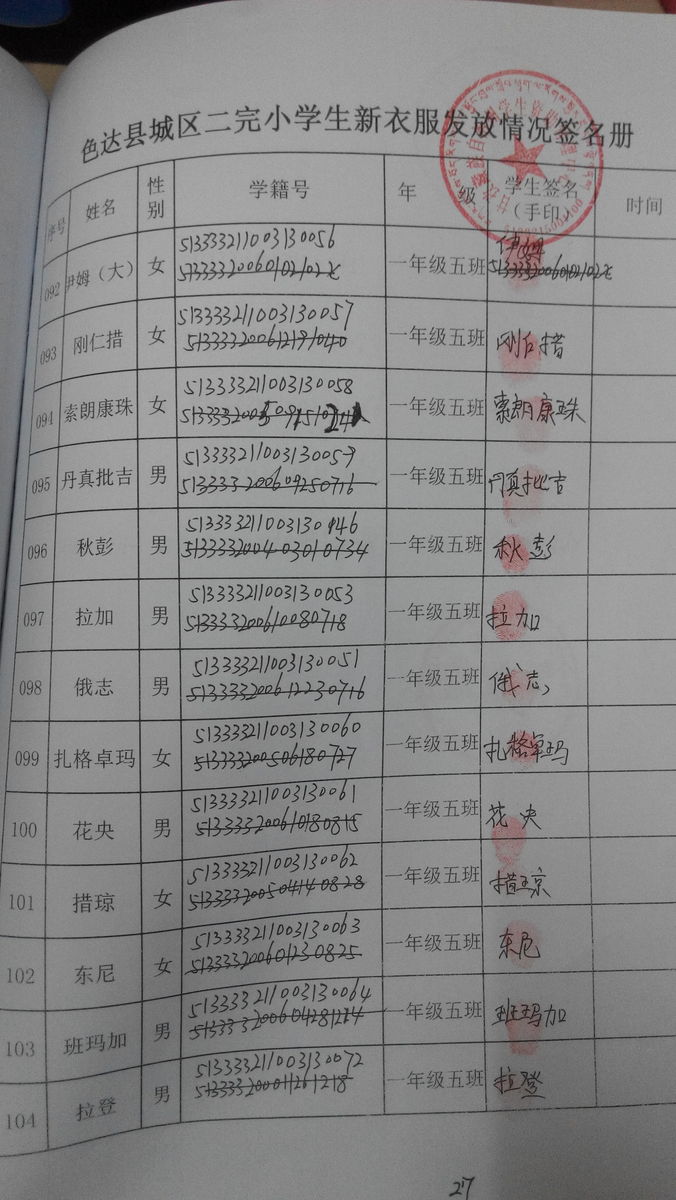 色达县城区二完小学生新衣服发放情况签名册
序号 姓名 性别 学籍号 年 级 学生签名（手印） 时间
092 尹姆（大） 女 513333211003130056 一年级五班 伊姆
093 刚仁措 女 513333211003130057 一年级五班
094 索朗康珠 女 513333211003130058 一年级五班 索朗康珠
095 丹真批吉 男 513333211003130059 一年级五班 丹真批吉
096 秋彭 男 513333211003130146 一年级五班 秋彭
097 拉加 男 513333211003130053 一年级五班 拉加
098 俄志 男 513333211003130051 一年级五班 俄志
099 扎格卓玛 女 513333211003130060 一年级五班 扎格卓玛
100 花央 男 513333211003130061 一年级五班 花央
101 措琼 女 513333211003130062 一年级五班 措琼
102 东尼 女 513333211003130063 一年级五班 东尼
103 班玛加 男 513333211003130064 一年级五班 班玛加
104 拉登 男 513333211003130072 一年级五班 拉登
27